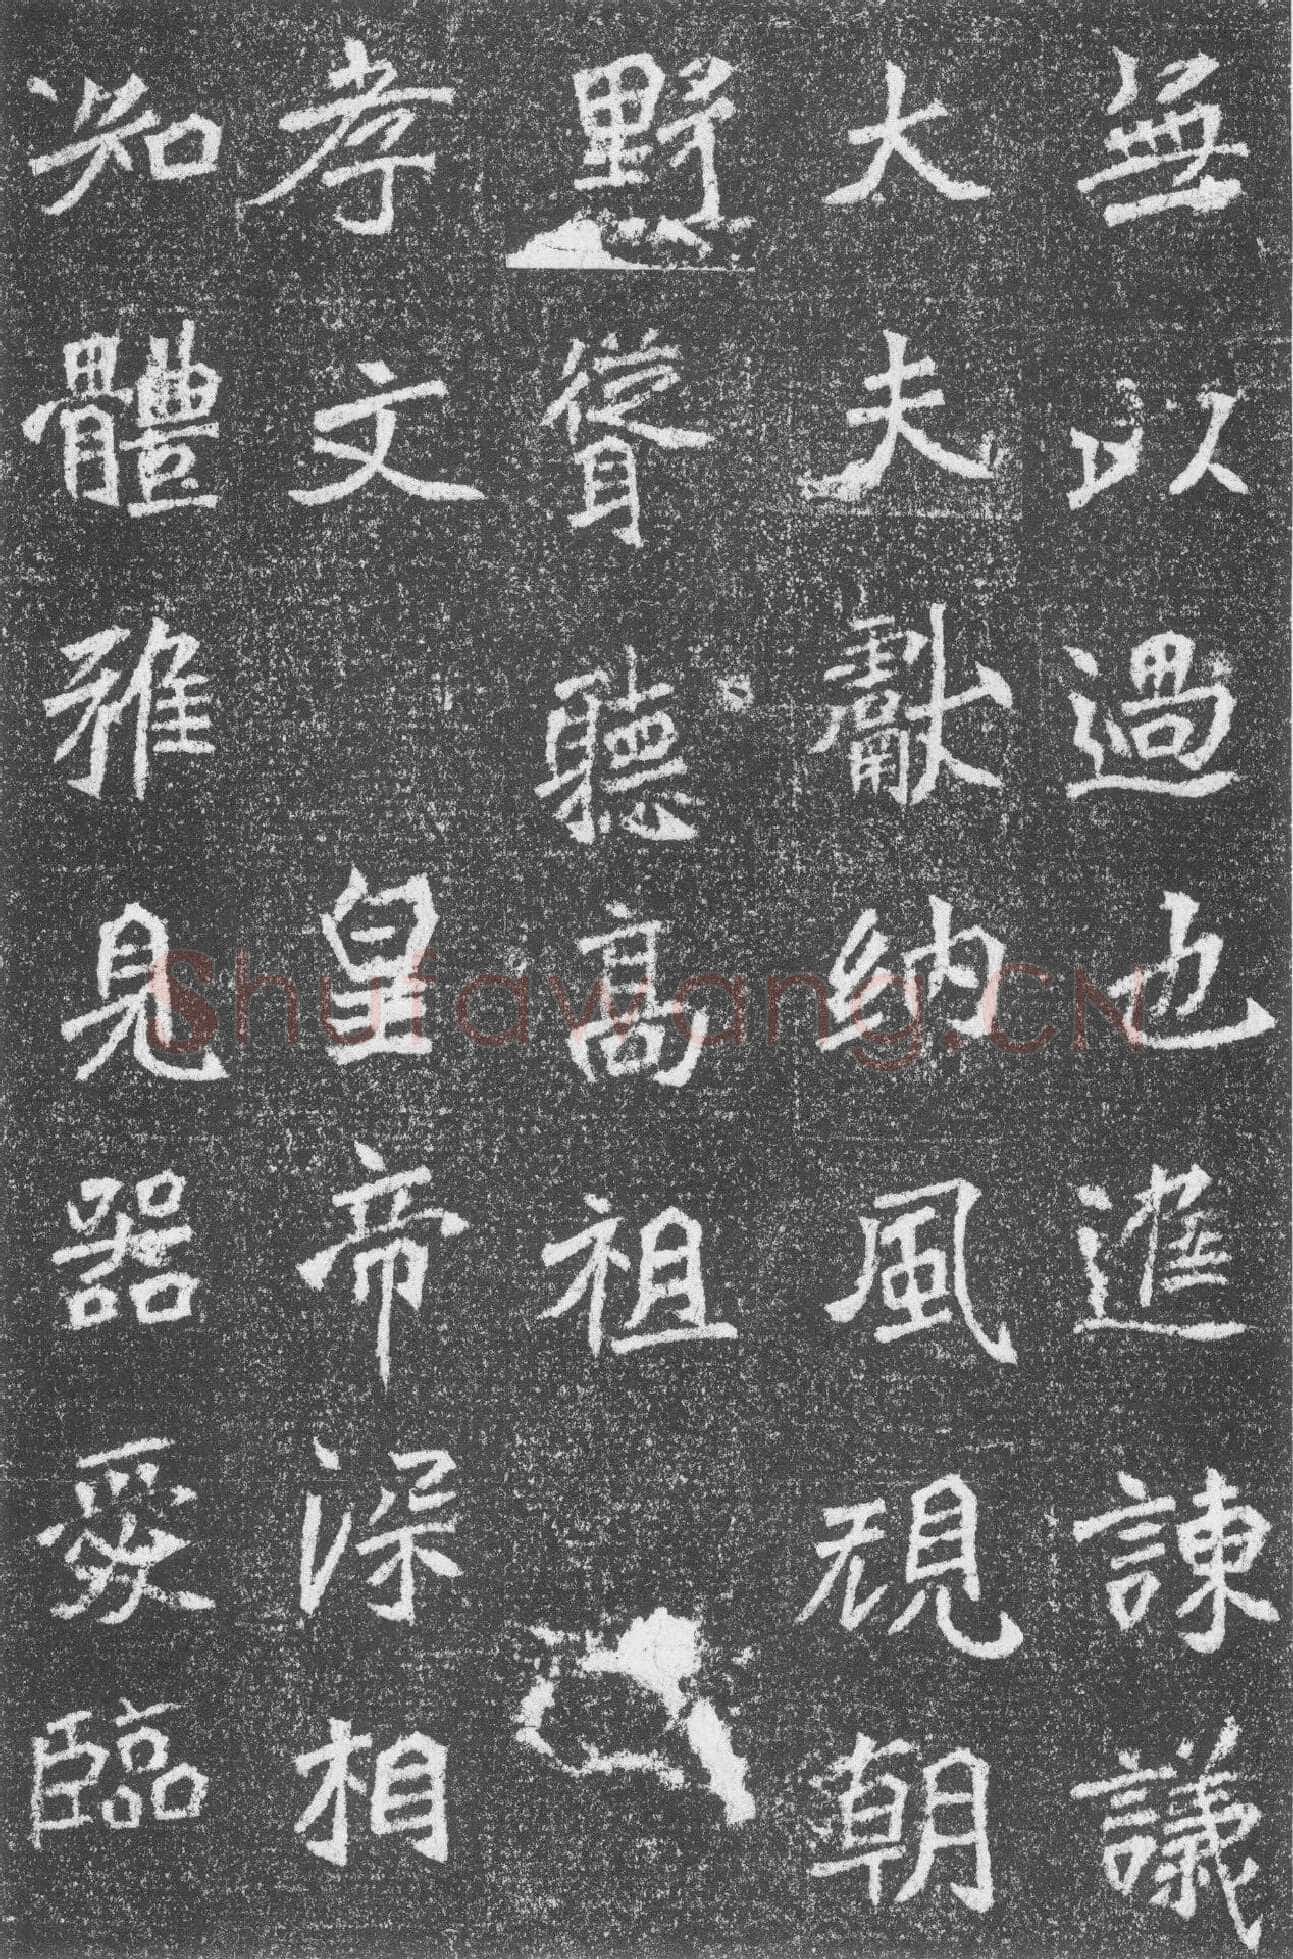 無以過也進諫議
大夫獻納風規朝
野聳聽高祖
孝文皇帝深相
知體雅見器愛臨
Shufawang.CN